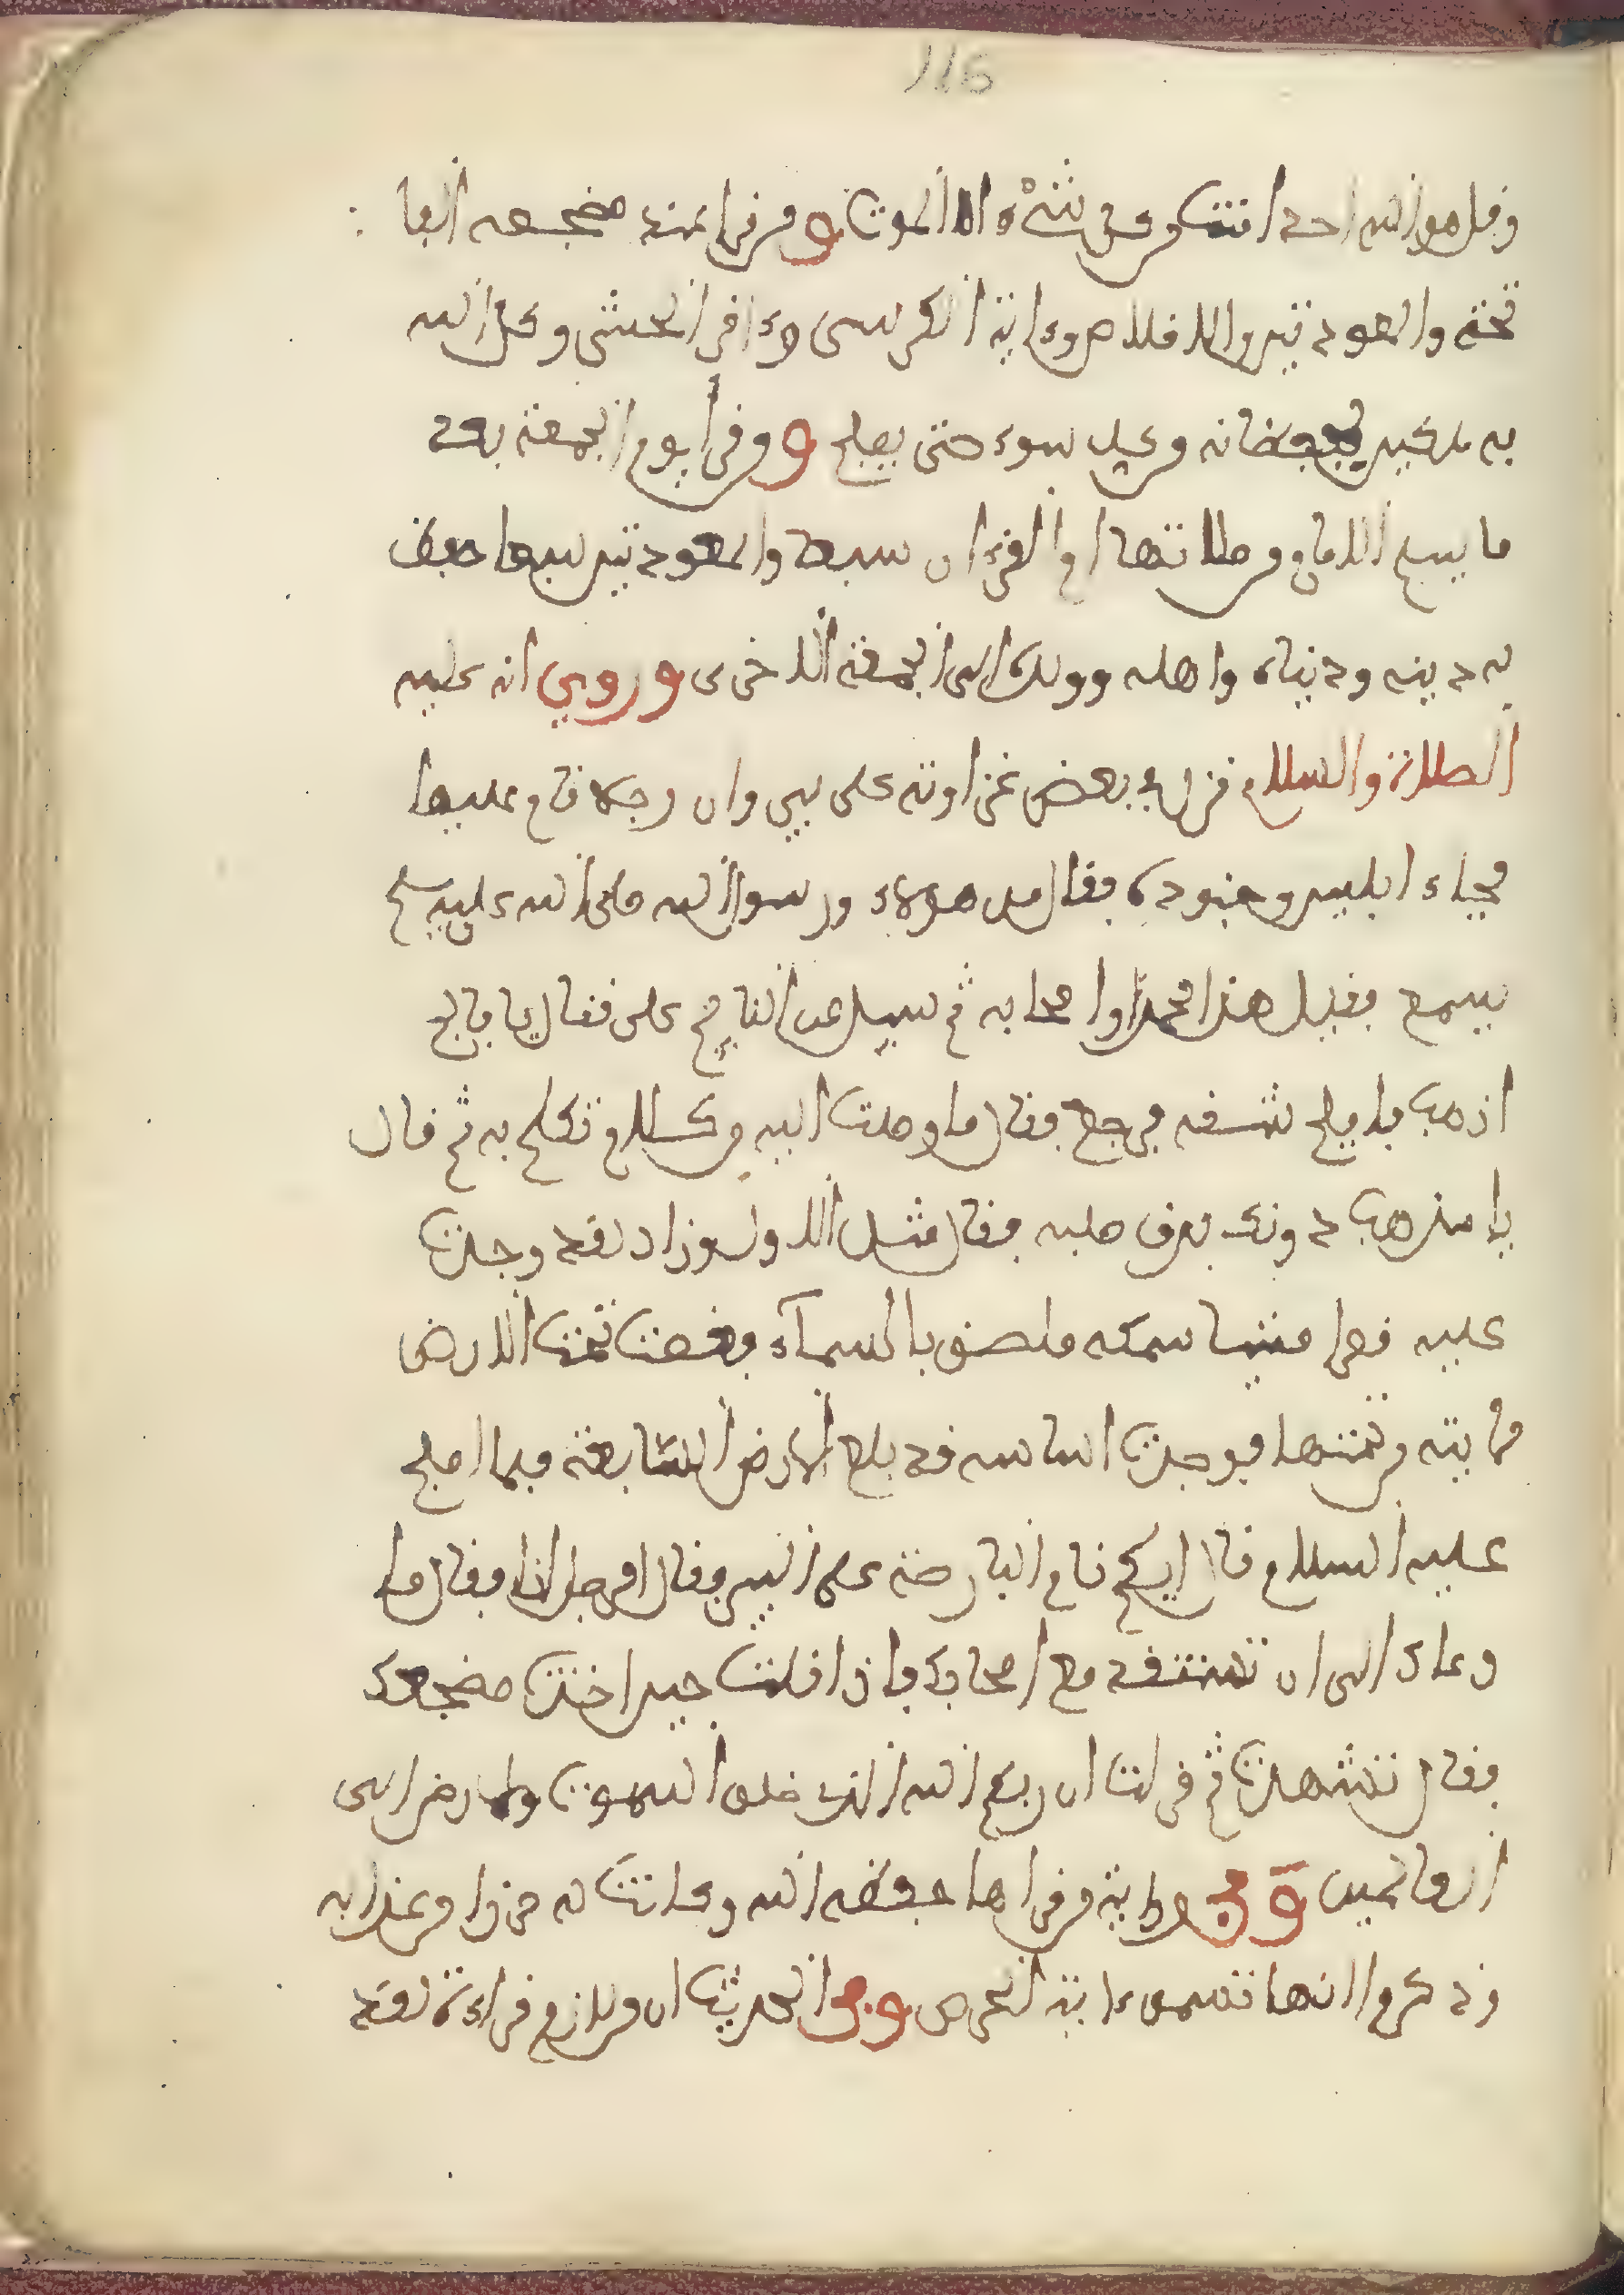 116
وقل هو الله احد امنت من كل شيء الا الموت ومن قرا عند مضجعه الفا
تحة والمعوذتين والاخلاص وءاية الكرسي وءاخر الحشر وكل الله
به ملكين يحفظانه من كل سوء حتى يصبح ومن قرا يوم الجمعة بعد
ما يسلم الامام من صلاتها ام القرءان سبعا والمعوذتين سبعا حفظ
به دينه ودنياه واهله وولده الى الجمعة الاخرى وروي انه عليه
الصلاة والسلام نزل في بعض غزاوته على بير وان رجلا نام عليها
فجاء ابليس وجنوده فقال من هؤلاء ورسول الله صلى الله عليه وسلم
يسمع فقيل هذا محمد واصحابه ثم سيل عن النايم على فقال يا
اذهب فاقلع شقه فرجع فقال ما وصلت اليه من كلام تكلم به ثم قال
يا مذهب دونك بئر صلبه فقال مثل الاول وزاد لقد وجدت
عليه قصرا مشيا سمكه ملصق بالسماء فغصت تحت الارض
من تحتها فوجدت اساسه قد بلغ الارض السابعة فلما اصبح
عليه السلام قال ايكم نام البارحة على البير فقال رجل انا فقال ما
دعاك الى ان تستنفد مع اصحابك فاذا قلت حين اخذت مضجعك
فقال تشهدت ثم قرات ان ربكم الله الذي خلق السموت والارض الى
العالمين وفي رواية من قراها حفظه الله وكانت له حرزا من عذابه
وذكروا انها تسمى ءاية الحرص وفي الحديث ان من لازم قراءة لقد